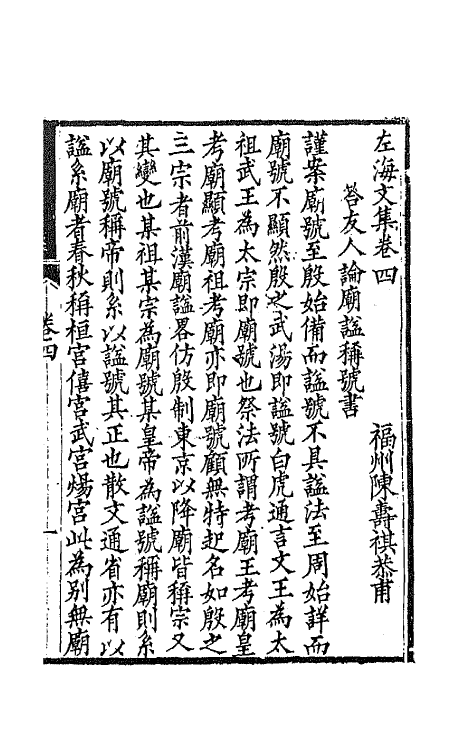 左海文集卷四
福州陳壽祺恭甫
答友人論廟謚稱號書
謹案廟號至殷始備而謚號不具謚法至周始詳而
廟號不顯然殷之武湯即謚號白虎通言文王為太
祖武王為太宗即廟號也祭法所謂考廟王考廟皇
考廟顯考廟祖考廟亦即廟號顧無特起名如殷之
三宗者前漢廟謚畧仿殷制東京以降廟皆稱宗又
其變也某祖某宗為廟號某皇帝為謚號稱廟則系
以廟號稱帝則系以謚號其正也散文通省亦有以
謚系廟者春秋稱桓宮僖宮武宮煬宮此為別無廟
卷四
一